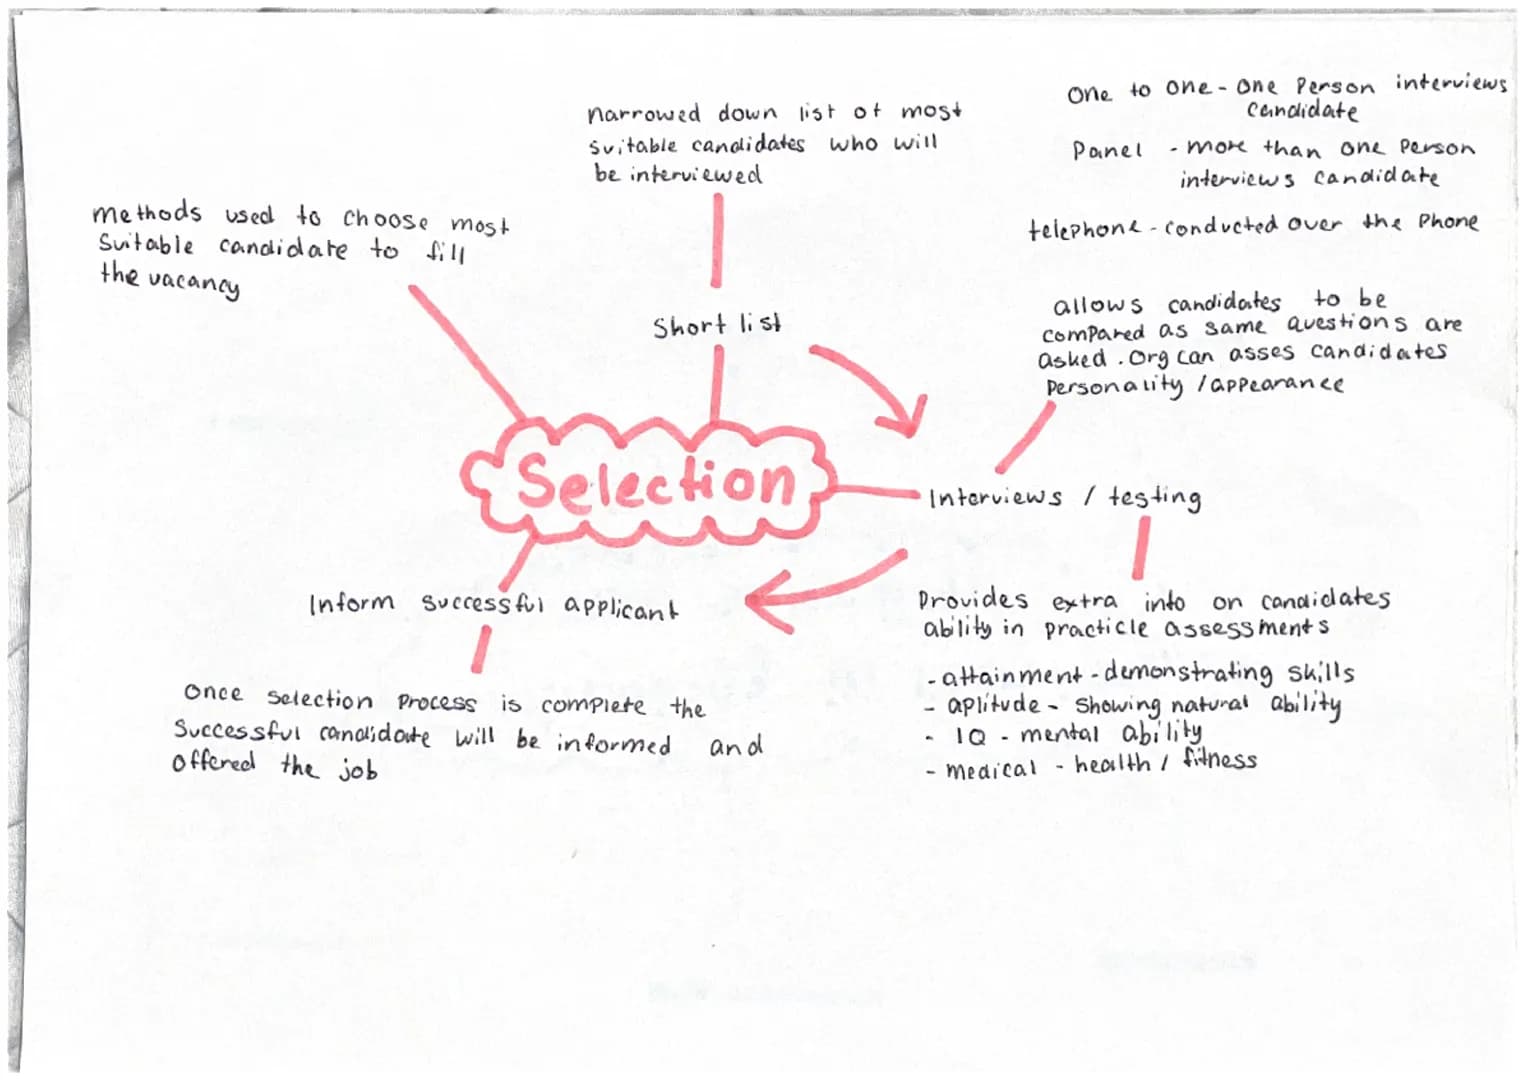 narrowed down list of most
suitable candidates who will
be interviewed
one to one - one Person interviews
candidate
Panel - more than one person
interviews candidate
telephone - conducted over the Phone
methods used to choose most
suitable candidate to fill
the vacancy
Short list
allows candidates to be
compared as same questions are
asked. Org can asses candidates
personality / appearance
Selection
Interviews / testing
Inform successful applicant
Provides extra info on candidates
ability in practicle assessments
- attainment - demonstrating skills
- aptitude - showing natural ability
- IQ - mental ability
- medical - health / fitness
once selection process is complete the
successful candidate will be informed and
offered the job